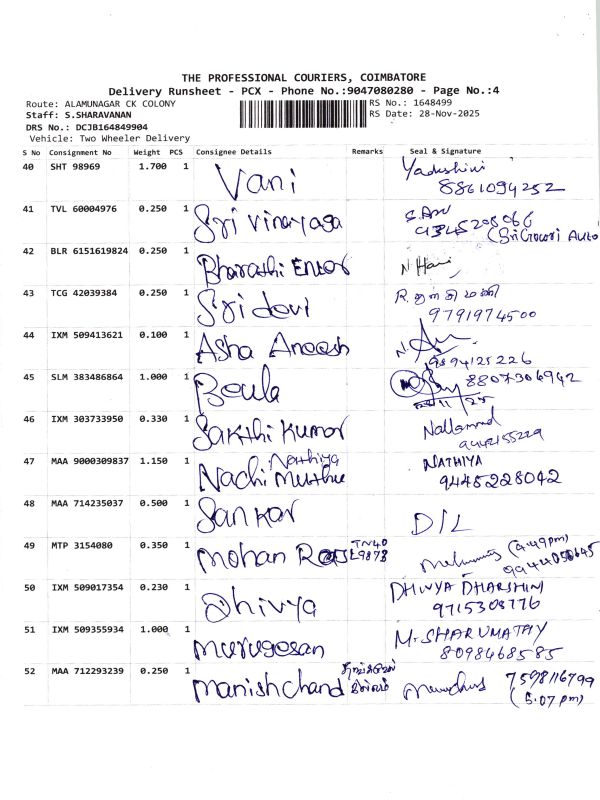 THE PROFESSIONAL COURIERS, COIMBATORE
Delivery Runsheet - PCX - Phone No.:9047080280 - Page No.:4
Route: ALAMUNAGAR CK COLONY RS No.: 1648499
Staff: S.SHARAVANAN RS Date: 28-Nov-2025
DRS No.: DCJB164849904
Vehicle: Two Wheeler Delivery
S No Consignment No Weight PCS Consignee Details Remarks Seal & Signature
40 SHT 98969 1.700 1 Vani Yadushini
8861094252
41 TVL 60004976 0.250 1 Sri Vinayaga
(Sri Gowri Auto)
42 BLR 6151619824 0.250 1 Bharathi N. Hari
43 TCG 42039384 0.250 1 Sri devi
9791974500
44 IXM 509413621 0.100 1 Asha Aneesh
9894125226
45 SLM 383486864 1.000 1 Beula 8807306942
46 IXM 303733950 0.330 1 Sakthi Kumar
47 MAA 9000309837 1.150 1 Nachi Muthu Nathiya NATHIYA
9445228042
48 MAA 714235037 0.500 1 Sankar D/L
49 MTP 3154080 0.350 1 Mohan TN40
(4:49pm)
50 IXM 509017354 0.230 1 Dhivya DHIVYA DHARSHINI
9715308776
51 IXM 509355934 1.000 1 Murugesan M. SHARUMATHY
8098468585
52 MAA 712293239 0.250 1 Manish chand 7598116799
(5:07 pm)